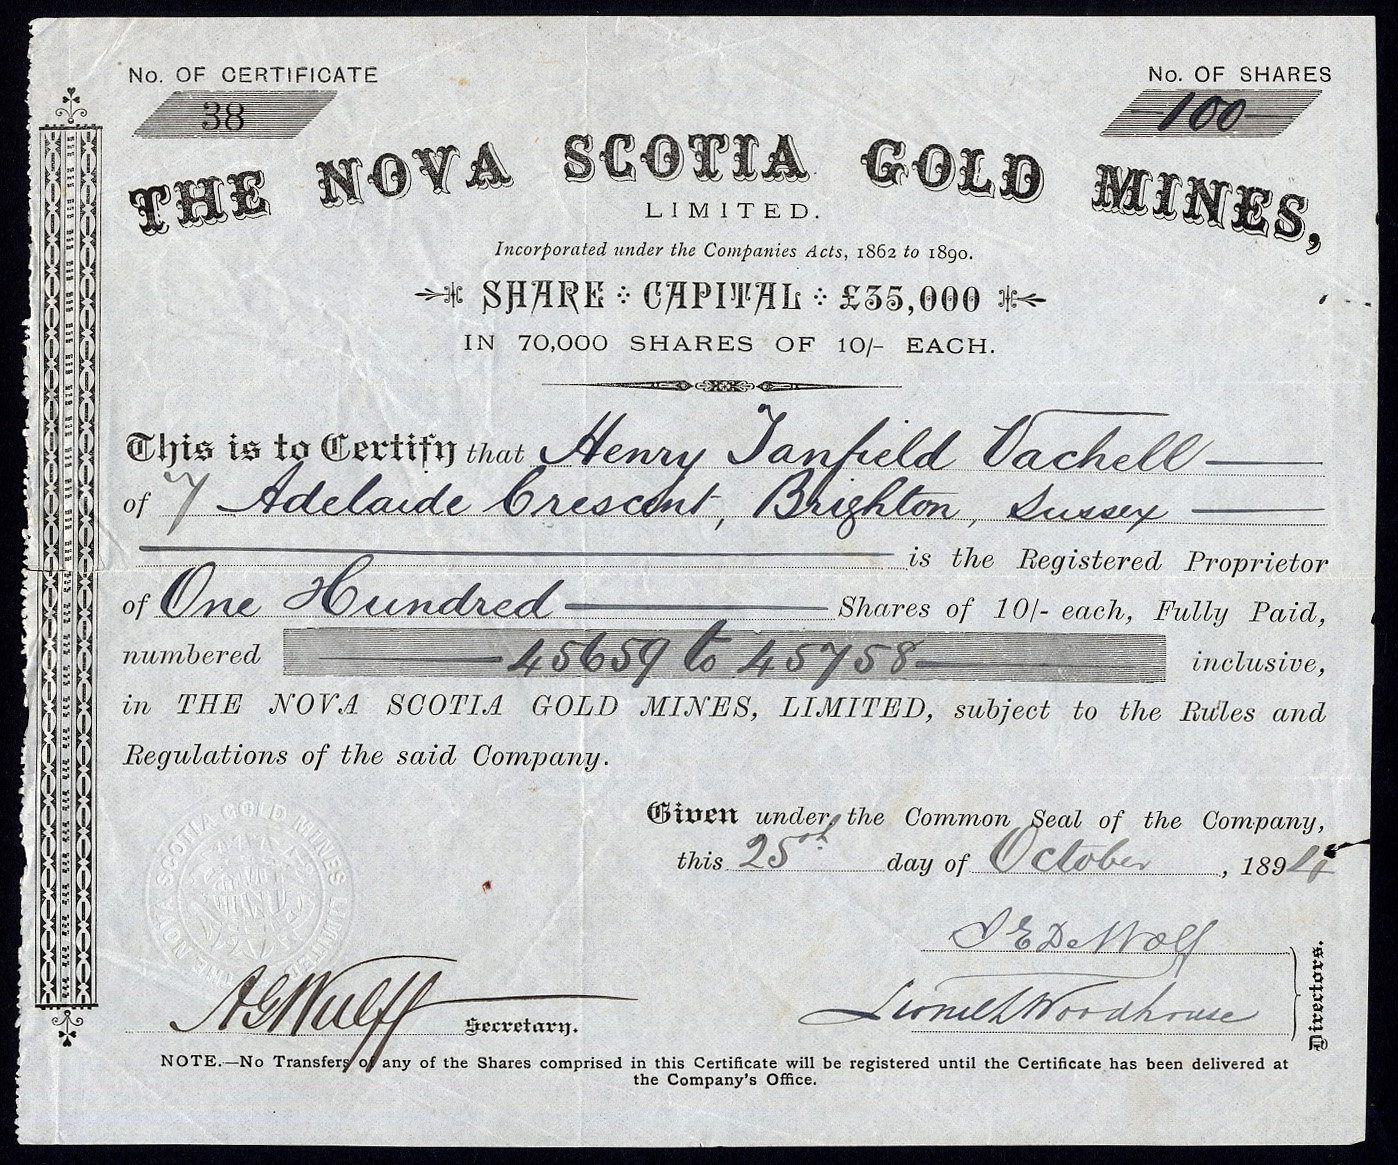 No. OF CERTIFICATE
38
No. OF SHARES
100
THE NOVA SCOTIA GOLD MINES,
LIMITED.
Incorporated under the Companies Acts, 1862 to 1890.
SHARE CAPITAL £35,000
IN 70,000 SHARES OF 10/- EACH.
This is to Certify that Henry Tanfield Vachell
of 7 Adelaide Crescent, Brighton, Sussex
is the Registered Proprietor
of One Hundred Shares of 10/- each, Fully Paid,
numbered 45659 to 45758 inclusive,
in THE NOVA SCOTIA GOLD MINES, LIMITED, subject to the Rules and
Regulations of the said Company.
Given under the Common Seal of the Company,
this 25th day of October, 1894
THE NOVA SCOTIA GOLD MINES LIMITED
J E DeWolf
Lionel L Woodhouse
Directors.
A G Wulff Secretary.
NOTE.—No Transfers of any of the Shares comprised in this Certificate will be registered until the Certificate has been delivered at
the Company's Office.